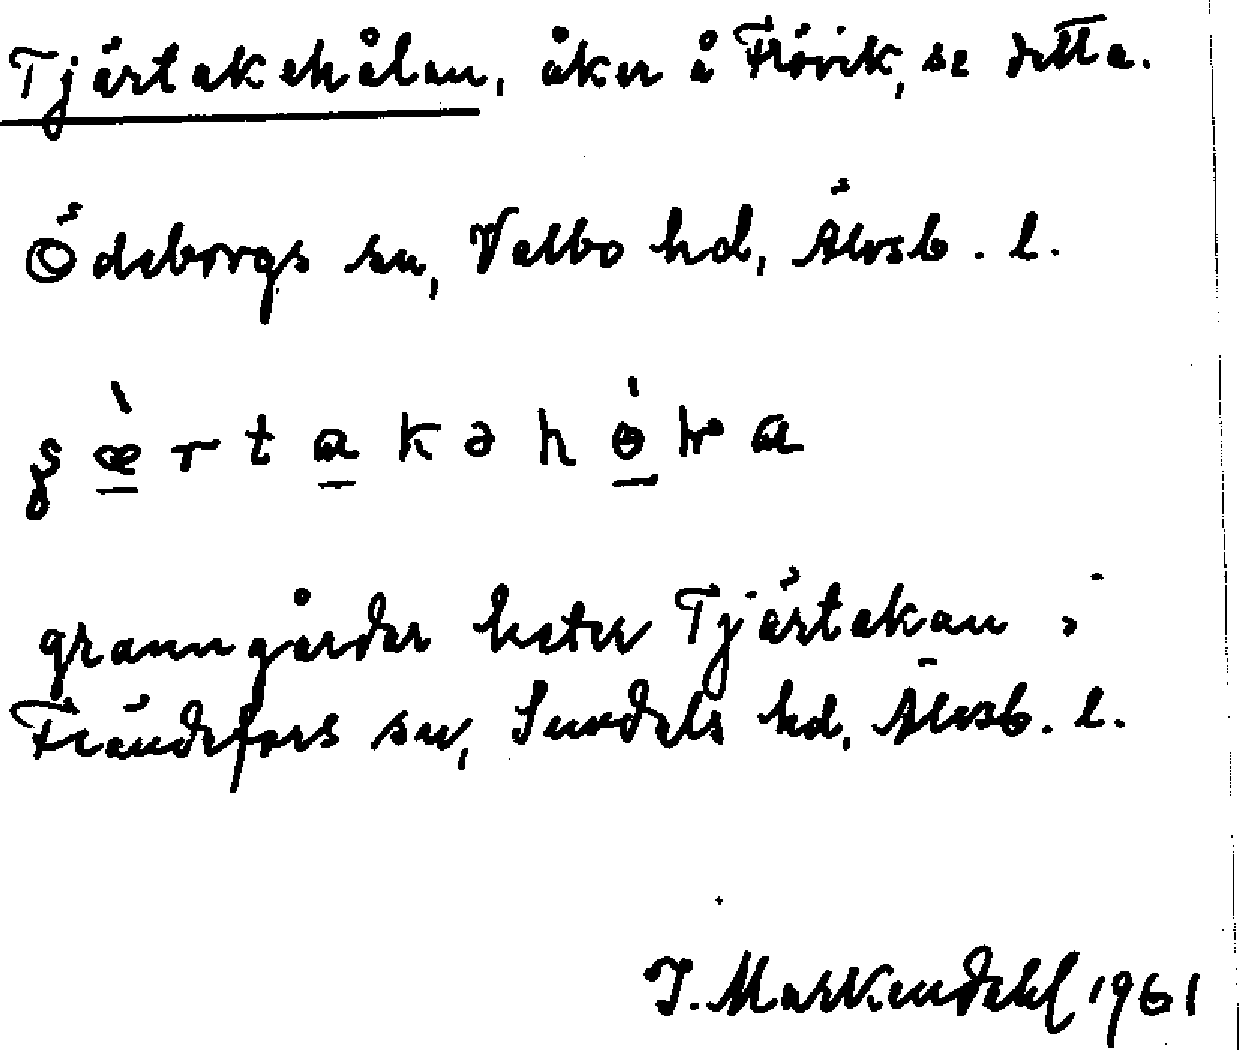 Tjärtakehålan, åker å Frövik, se detta.
Ödeborgs sn, Valbo hd, Älvsb. l.
granngården heter Tjärtakan i
Frändefors sn, Sundals hd, Älvsb. l.
J. Markendahl 1961